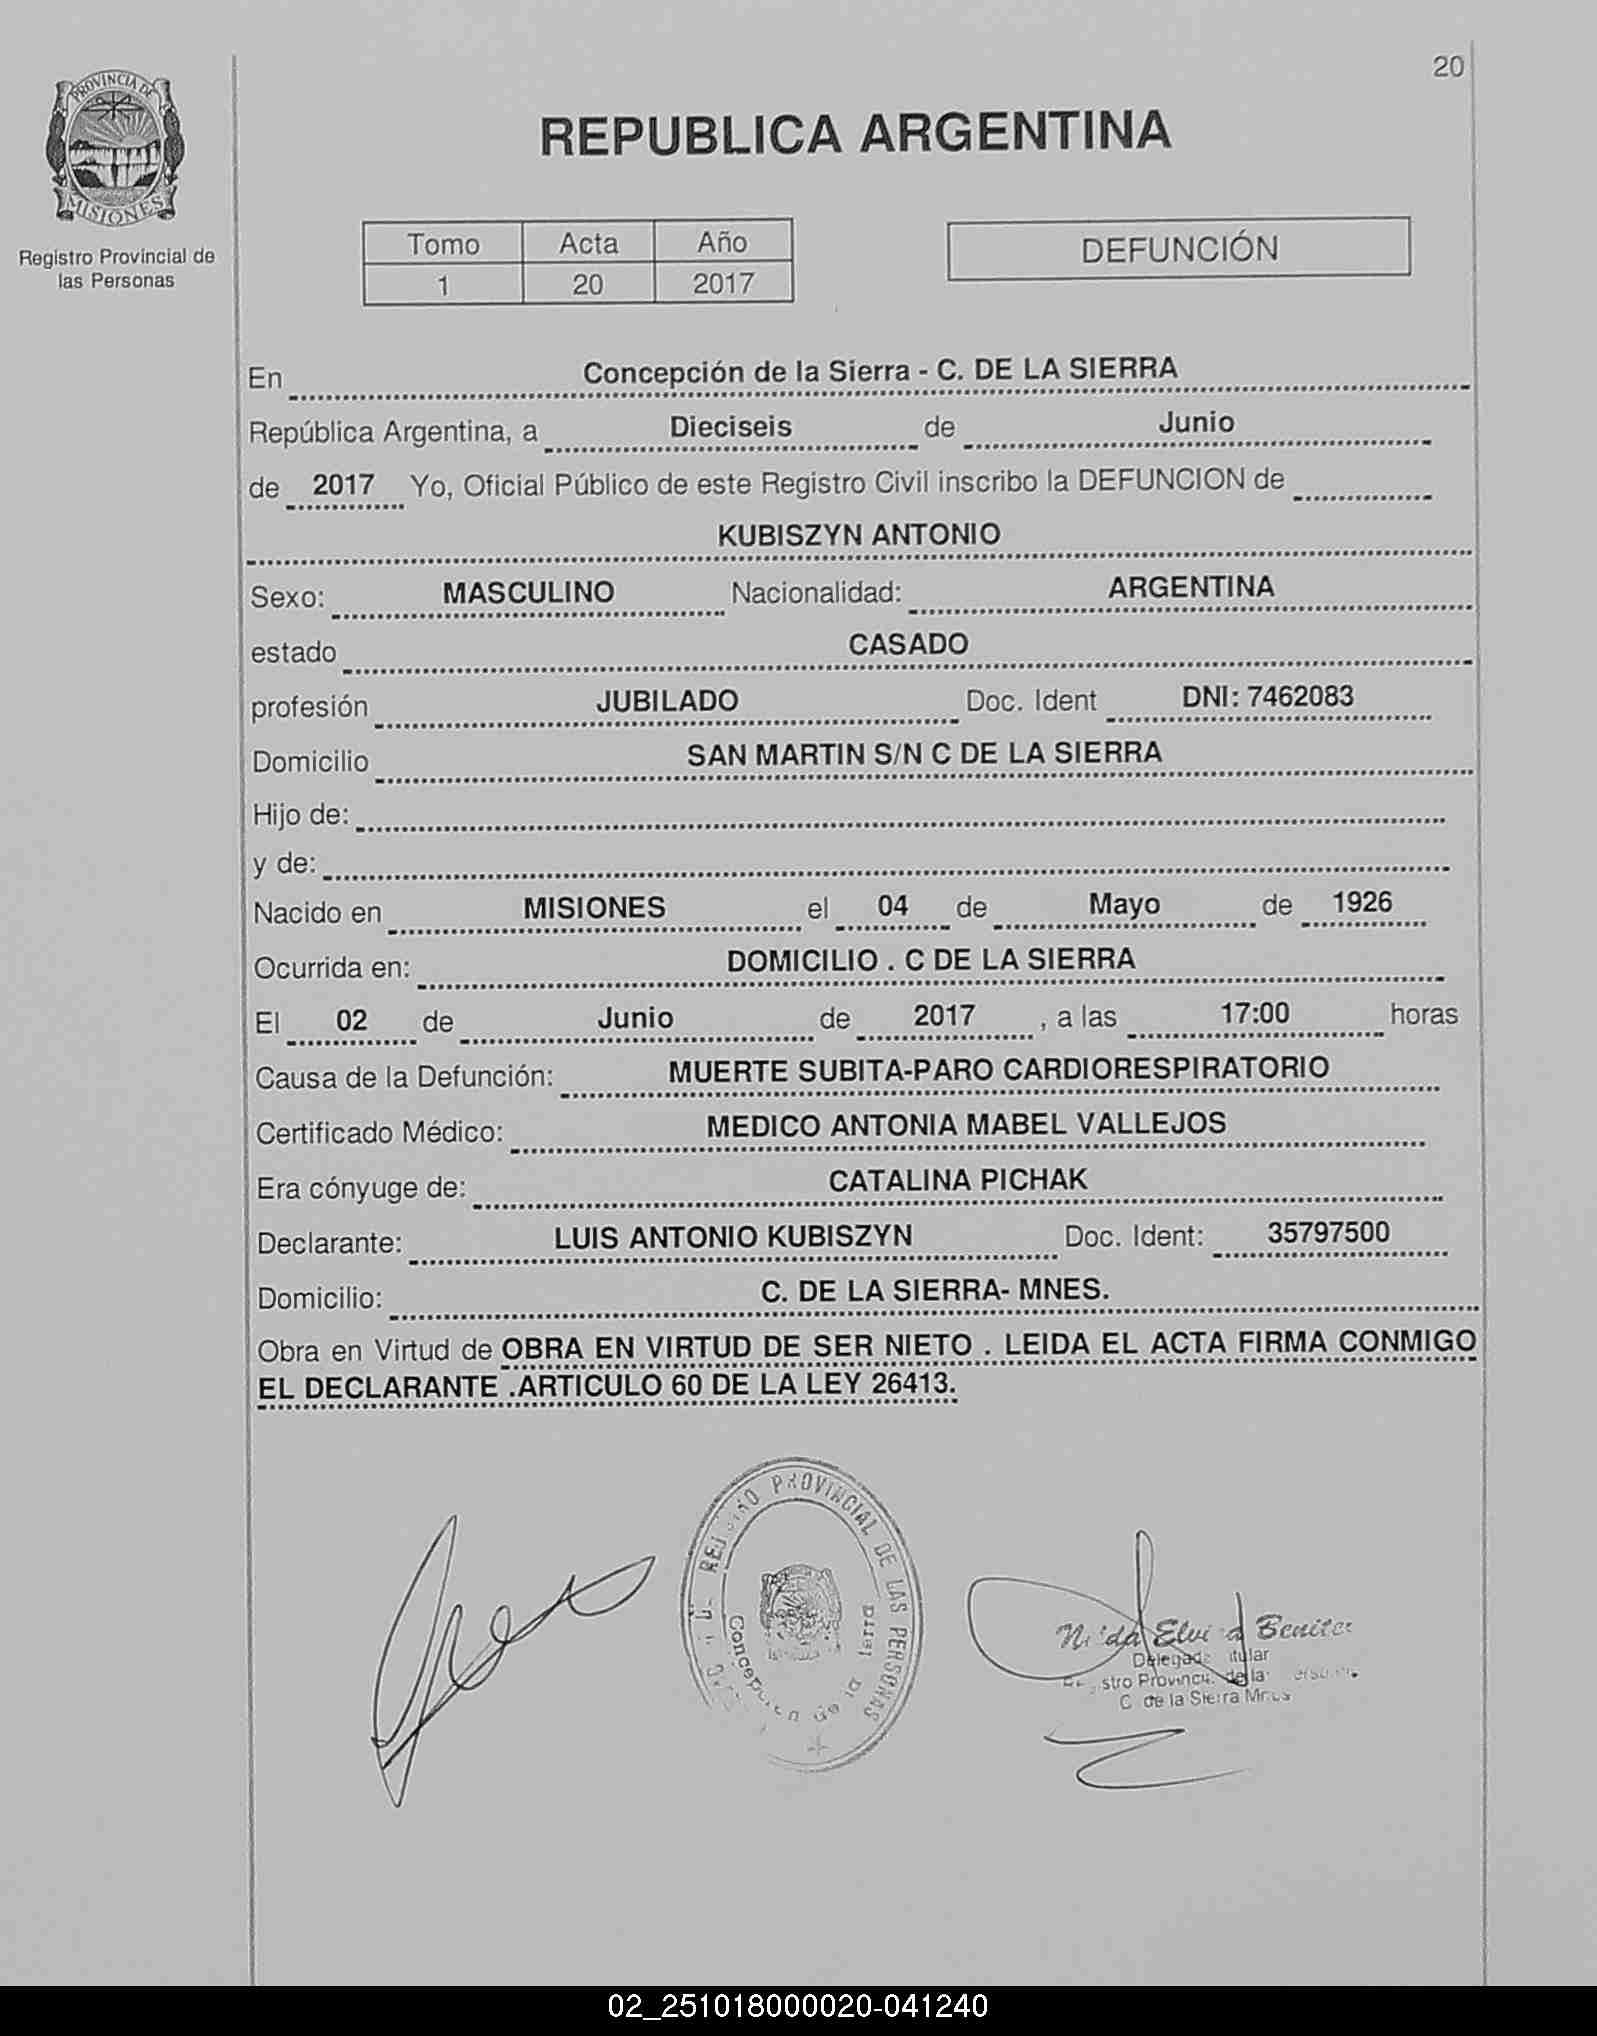 20
PROVINCIA DE
MISIONES
Registro Provincial de
las Personas
REPUBLICA ARGENTINA
Tomo Acta Año
1 20 2017
DEFUNCIÓN
En Concepción de la Sierra - C. DE LA SIERRA
República Argentina, a Dieciseis de Junio
de 2017 Yo, Oficial Público de este Registro Civil inscribo la DEFUNCION de
KUBISZYN ANTONIO
Sexo: MASCULINO Nacionalidad: ARGENTINA
estado CASADO
profesión JUBILADO Doc. Ident DNI: 7462083
Domicilio SAN MARTIN S/N C DE LA SIERRA
Hijo de:
y de:
Nacido en MISIONES el 04 de Mayo de 1926
Ocurrida en: DOMICILIO . C DE LA SIERRA
El 02 de Junio de 2017 , a las 17:00 horas
Causa de la Defunción: MUERTE SUBITA-PARO CARDIORESPIRATORIO
Certificado Médico: MEDICO ANTONIA MABEL VALLEJOS
Era cónyuge de: CATALINA PICHAK
Declarante: LUIS ANTONIO KUBISZYN Doc. Ident: 35797500
Domicilio: C. DE LA SIERRA- MNES.
Obra en Virtud de OBRA EN VIRTUD DE SER NIETO . LEIDA EL ACTA FIRMA CONMIGO
EL DECLARANTE .ARTICULO 60 DE LA LEY 26413.
PROVINCIAL DE LAS PERSONAS
de la
Benitez
C de la Sierra
02_251018000020-041240